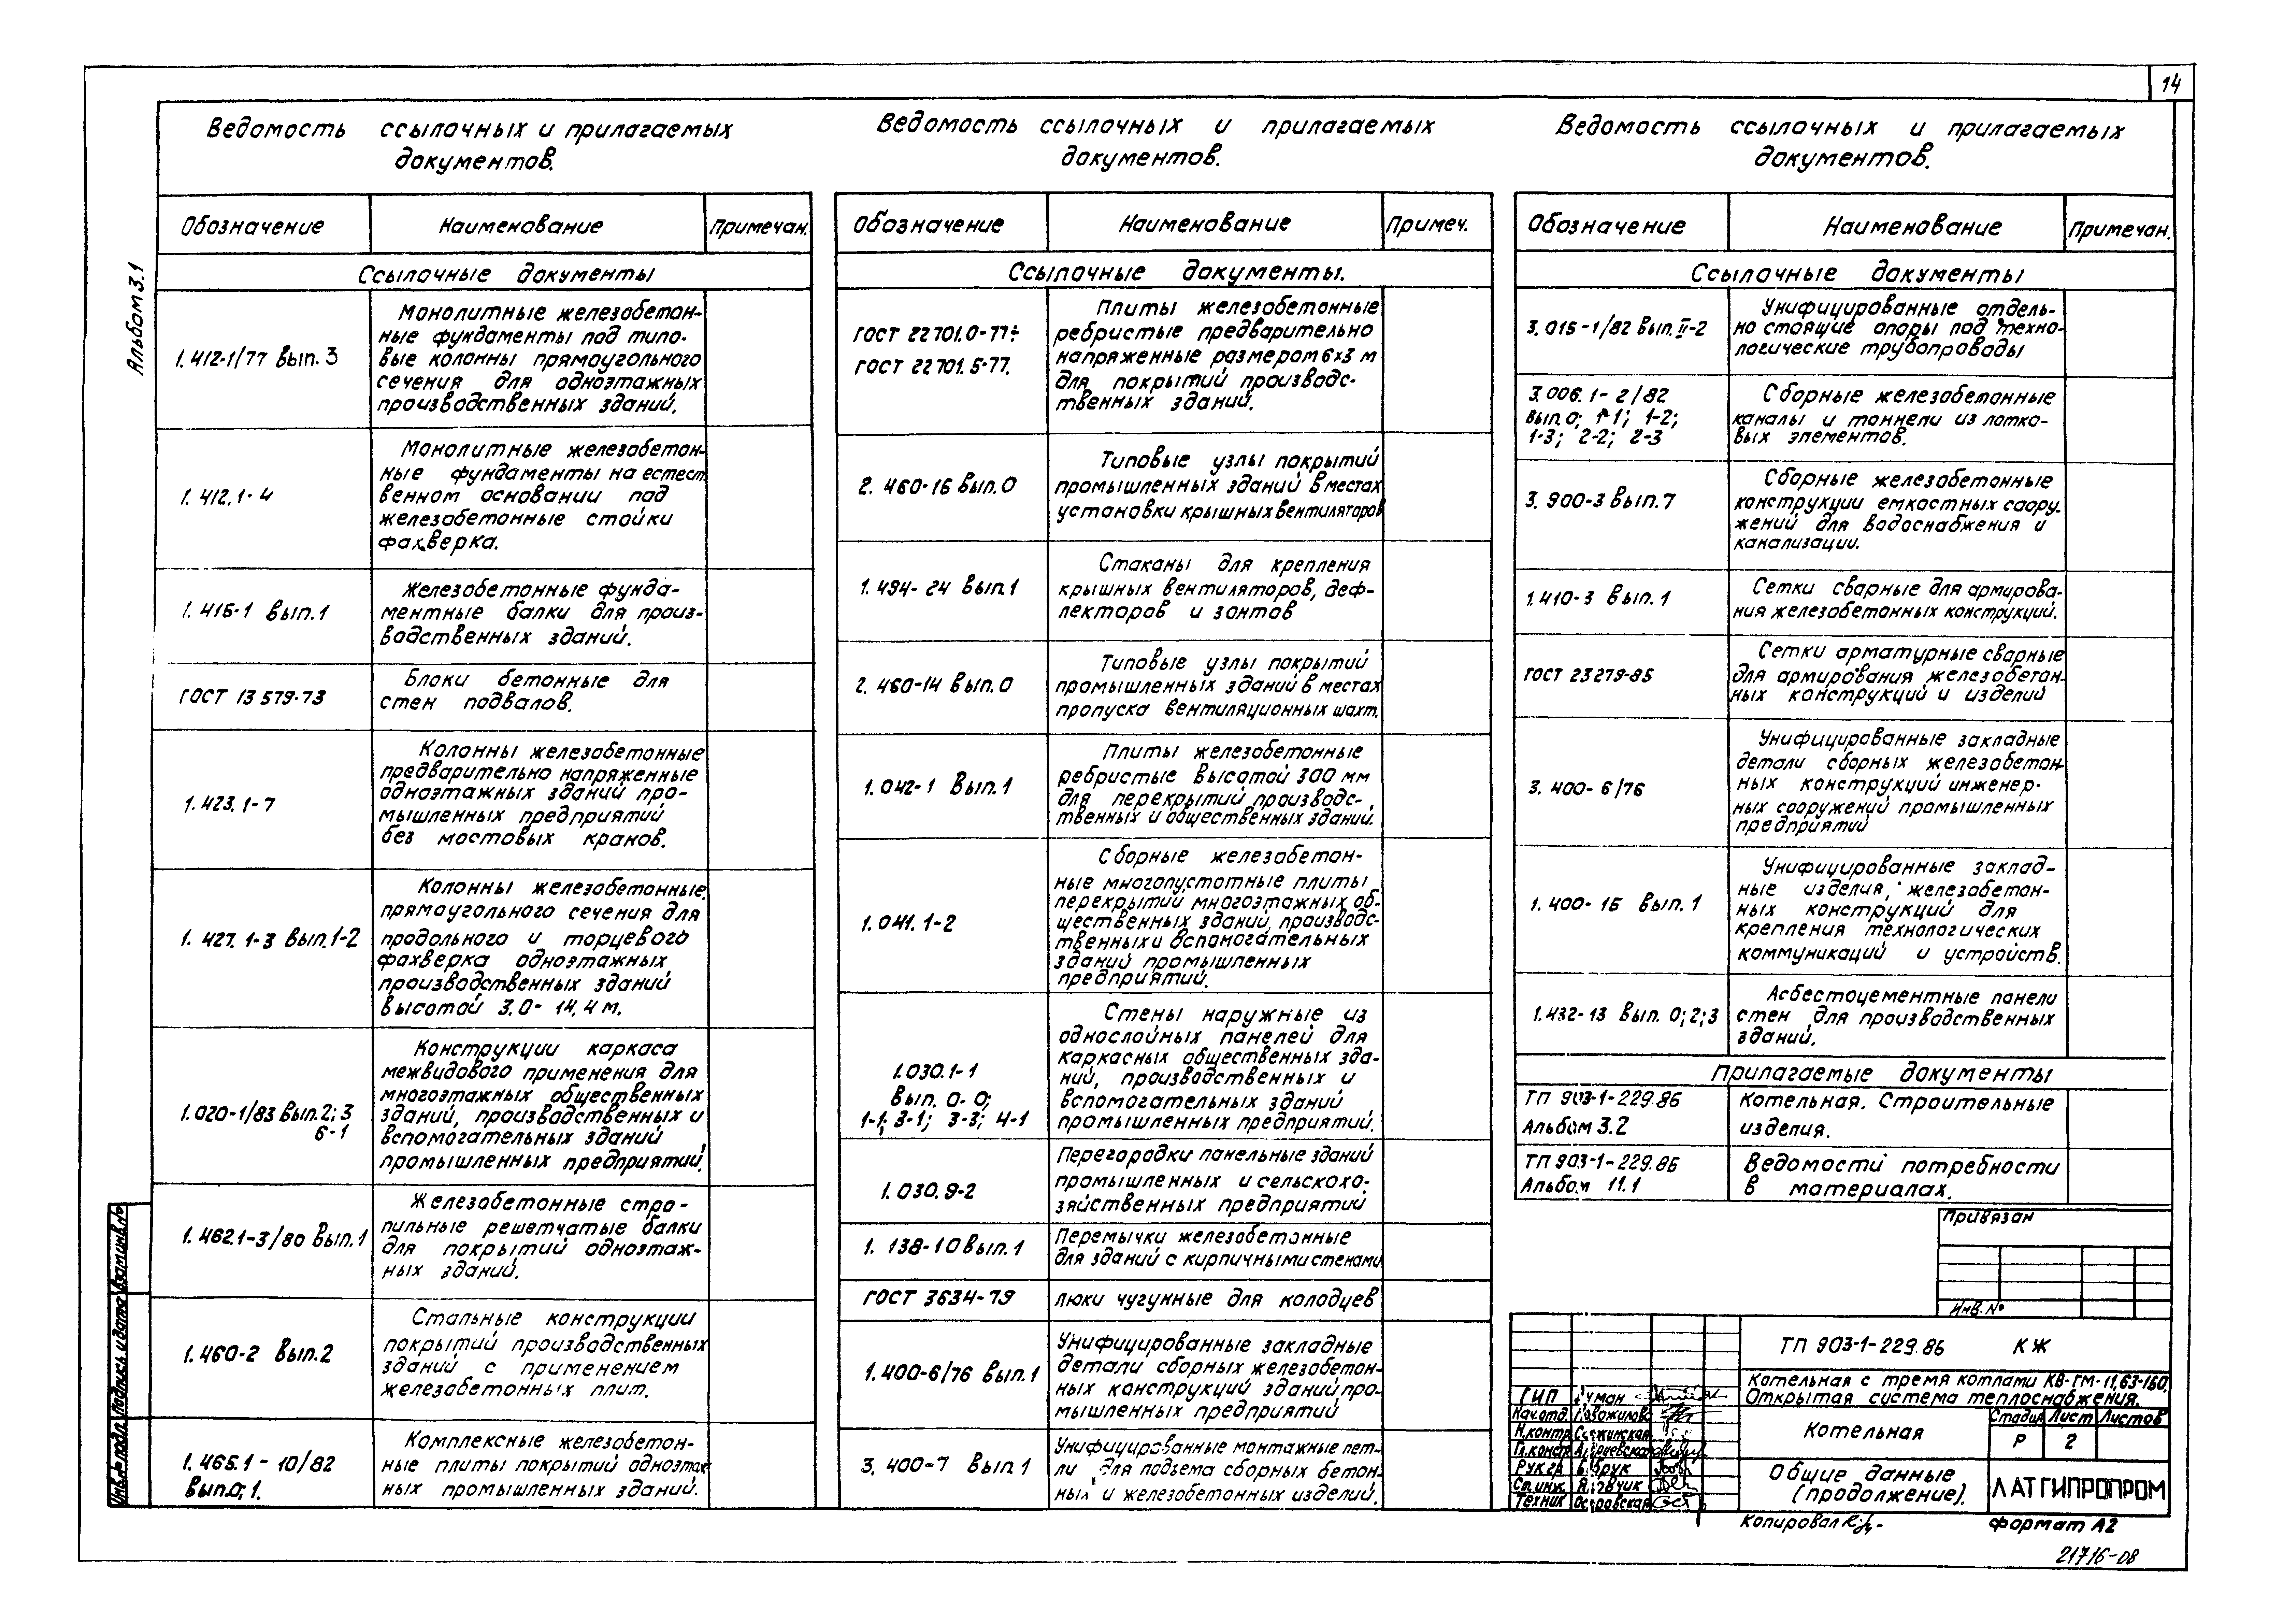 14
Альбом 3.1
Ведомость ссылочных и прилагаемых
документов.
Обозначение Наименование Примечан.
Ссылочные документы
1.412-1/77 Вып. 3
Монолитные железобетон-
ные фундаменты под типо-
вые колонны прямоугольного
сечения для одноэтажных
производственных зданий.
1.412.1-4
Монолитные железобетон-
ные фундаменты на естест
венном основании под
железобетонные стойки
фахверка.
1.415-1 Вып. 1
Железобетонные фунда-
ментные балки для произ-
водственных зданий.
ГОСТ 13579-73
Блоки бетонные для
стен подвалов.
1.423.1-7
Колонны железобетонные
предварительно напряженные
одноэтажных зданий про-
мышленных предприятий
без мостовых кранов.
1.427.1-3 Вып.1-2
Колонны железобетонные
прямоугольного сечения для
продольного и торцевого
фахверка одноэтажных
производственных зданий
высотой 3.0-14,4 м.
1.020-1/83 Вып.2; 3
6-1
Конструкции каркаса
межвидового применения для
многоэтажных общественных
зданий, производственных и
вспомогательных зданий
промышленных предприятий.
1.462.1-3/80 Вып.1
Железобетонные стро-
пильные решетчатые балки
для покрытий одноэтаж-
ных зданий.
1.460-2 Вып.2
Стальные конструкции
покрытий производственных
зданий с применением
железобетонных плит.
1.465.1-10/82
Вып.0; 1.
Комплексные железобетон-
ные плиты покрытий одноэтаж
ных промышленных зданий.
Ведомость ссылочных и прилагаемых
документов.
Обозначение Наименование Примеч.
Ссылочные документы.
ГОСТ 22701.0-77÷
ГОСТ 22701.5-77.
Плиты железобетонные
ребристые предварительно
напряженные размером 6х3 м
для покрытий производс-
твенных зданий.
2.460-15 Вып.0
Типовые узлы покрытий
промышленных зданий в местах
установки крышных вентиляторов
1.494-24 Вып.1
Стаканы для крепления
крышных вентиляторов, деф-
лекторов и зонтов
2.460-14 Вып.0
Типовые узлы покрытий
промышленных зданий в местах
пропуска вентиляционных шахт.
1.042-1 Вып.1
Плиты железобетонные
ребристые высотой 300 мм
для перекрытий производс-
твенных и общественных зданий.
1.041.1-2
Сборные железобетон-
ные многопустотные плиты
перекрытий многоэтажных об-
щественных зданий, производс-
твенных и вспомогательных
зданий промышленных
предприятий.
1.030.1-1
Вып. 0-0;
1-1; 2-1; 3-3; 4-1
Стены наружные из
однослойных панелей для
каркасных общественных зда-
ний, производственных и
вспомогательных зданий
промышленных предприятий.
1.030.9-2
Перегородки панельные зданий
промышленных и сельскохо-
зяйственных предприятий
1.138-10 Вып.1
Перемычки железобетонные
для зданий с кирпичными стенами
ГОСТ 3634-79 люки чугунные для колодцев
1.400-6/76 Вып.1
Унифицированные закладные
детали сборных железобетон-
ных конструкций зданий про-
мышленных предприятий
3.400-7 Вып.1
Унифицированные монтажные пет-
ли для подъема сборных бетон-
ных и железобетонных изделий.
Ведомость ссылочных и прилагаемых
документов.
Обозначение Наименование Примечан.
Ссылочные документы
3.015-1/82 Вып.II-2
Унифицированные отдель-
но стоящие опоры под техно-
логические трубопроводы
3.006.1-2/82
Вып.0; 1-1; 1-2;
1-3; 2-2; 2-3
Сборные железобетонные
каналы и тоннели из лотко-
вых элементов.
3.900-3 Вып.7
Сборные железобетонные
конструкции емкостных соору-
жений для водоснабжения и
канализации.
1.410-3 Вып.1
Сетки сварные для армирова-
ния железобетонных конструкций.
ГОСТ 23279-85
Сетки арматурные сварные
для армирования железобетон-
ных конструкций и изделий
3.400-6/76
Унифицированные закладные
детали сборных железобетон-
ных конструкций инженер-
ных сооружений промышленных
предприятий
1.400-15 Вып.1
Унифицированные заклад-
ные изделия, железобетон-
ных конструкций для
крепления технологических
коммуникаций и устройств.
1.432-13 Вып. 0;2;3
Асбестоцементные панели
стен для производственных
зданий.
Прилагаемые документы
ТП 903-1-229.86
Альбом 3.2
Котельная. Строительные
изделия.
ТП 903-1-229.86
Альбом 11.1
Ведомости потребности
в материалах.
Привязан
Инв.№
ТП 903-1-229.86 КЖ
Котельная с тремя котлами КВ-ГМ-11,63-150.
Открытая система теплоснабжения.
Котельная
Стадия Лист Листов
Р 2
Общие данные
(продолжение).
ЛАТГИПРОПРОМ
ГИП
Нач.отд.
Н.контр
Гл.констр
Рук.гр
Ст.инж.
Техник Островская
Копировал
Формат А2
21716-08
Инв.№ подл. Подпись и дата Взам.инв.№